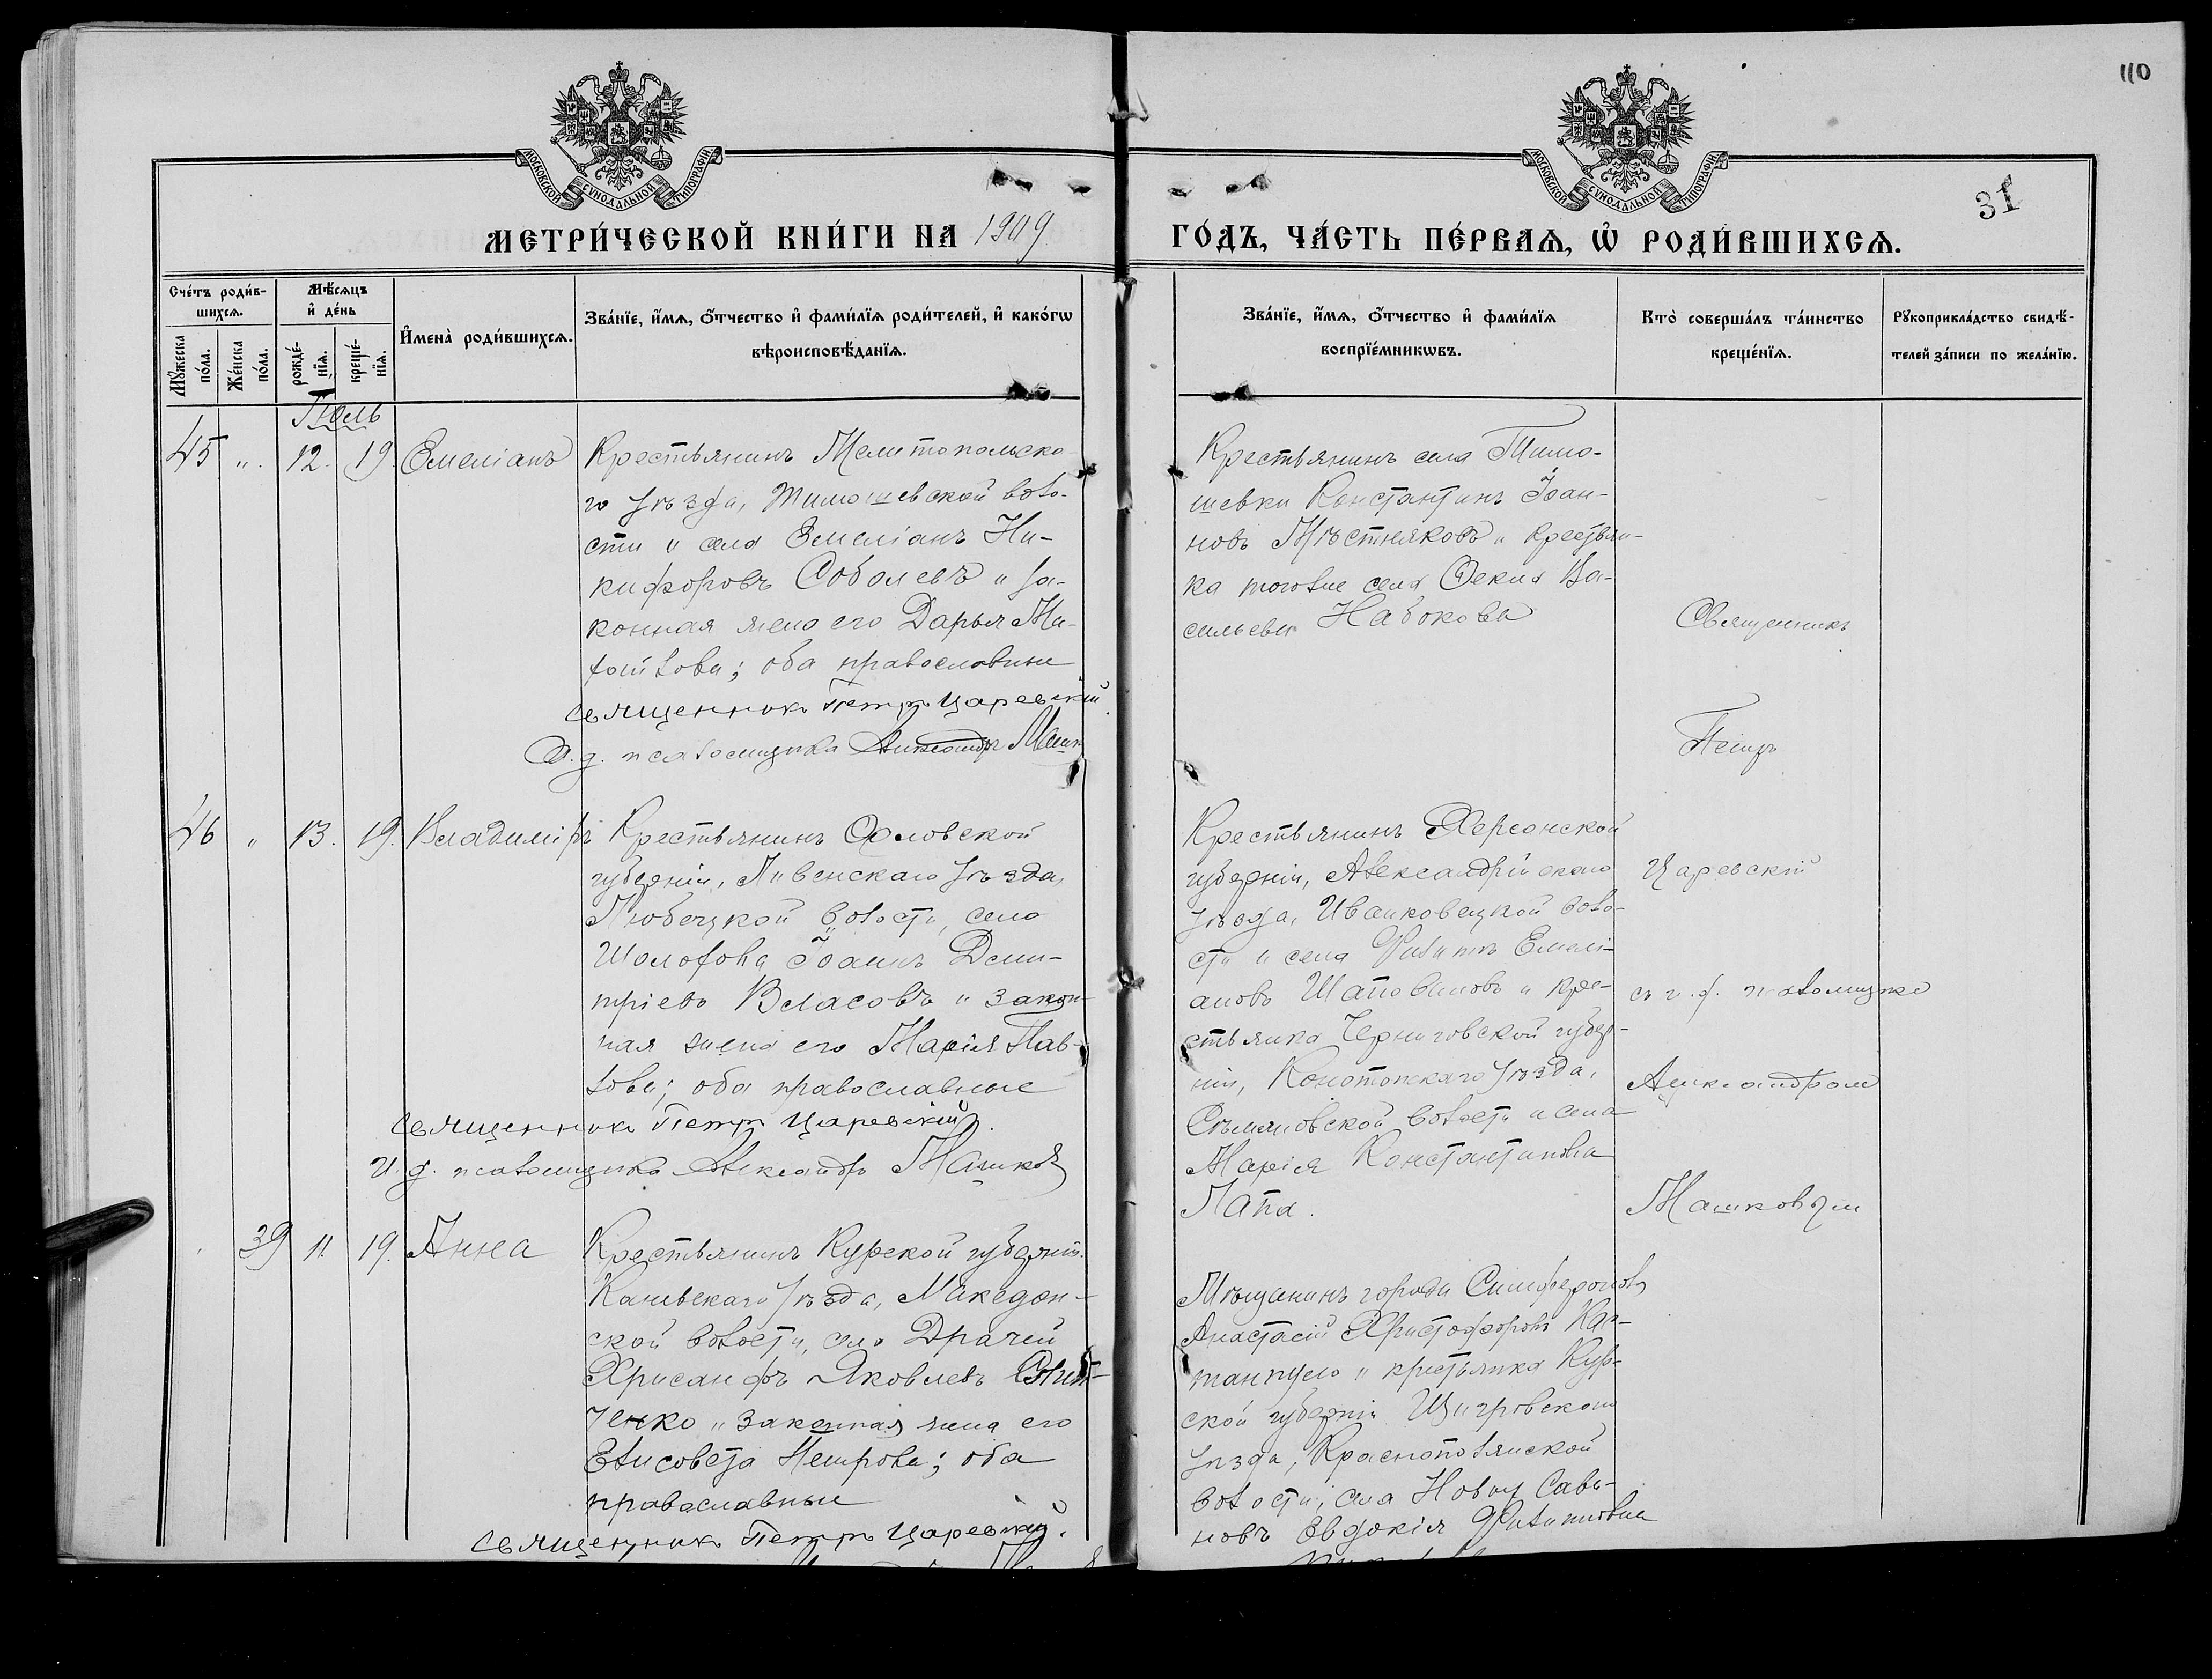 110
МОСКОВСКОЙ СУНОДАЛЬНОЙ ТИПОГРАФІИ
МОСКОВСКОЙ СУНОДАЛЬНОЙ ТИПОГРАФІИ
31
МЕТРИ́ЧЕСКОЙ КНИ́ГИ НА 1909
ГО́ДЪ, ЧА́СТЬ ПЕ́РВАѦ, Ѡ҆ РОДИ́ВШИХСѦ.
Сче́тъ роди́в-
шихсѧ.
Мꙋ́жеска по́ла.
Же́нска по́ла.
Мѣ́сѧцъ
и҆ де́нь
рожде́-
нїѧ.
креще́-
нїѧ.
И҆мена̀ роди́вшихсѧ.
Зва́нїе, и҆́мѧ, ѻ҆́тчество и҆ фами́лїѧ роди́телей, и҆ како́гѡ
вѣроисповѣ́данїѧ.
Зва́нїе, и҆́мѧ, ѻ҆́тчество и҆ фами́лїѧ
воспрїе́мникѡвъ.
Кто̀ соверша́лъ та́инство
креще́нїѧ.
Рꙋкоприкла́дство свидѣ́-
телей за́писи по жела́нїю.
Іюль
45 " 12. 19. Емеліанъ
Крестьянинъ Мелитопольска-
го уѣзда, Тимошевской воло-
сти и села Емеліанъ Ни-
кифоровъ Соболевъ и за-
конная жена его Дарья
; оба православные
священникъ Петръ Царевскій.
псаломщика Александръ Машк
Крестьянинъ села Тимо-
шевки Константинъ Іоан-
новъ Мѣстняковъ и крестьян-
ка тогоже села Ѳекла Ва-
сильева Набокова
Священникъ
Петръ
Царевскій
съ и. д. псаломщика
Александромъ
Машковымъ
46 " 13. 19. Владиміръ
Крестьянинъ Орловской
губерніи, Ливенскаго уѣзда,
волости, села
Іоаннъ Дими-
тріевъ Власовъ и закон-
ная жена его Марія Пав-
лова; оба православные
священникъ Петръ Царевскій.
И. д. псаломщика Александръ Машковъ
Крестьянинъ Херсонской
губерніи, Александрійскаго
уѣзда, Иванковецкой воло-
сти и села Филиппъ Емелі-
ановъ Шаповаловъ и кре-
стьянка Черниговской губер-
ніи, Конотопскаго уѣзда,
волости и села
Марія Константинова
Лапа.
39 11. 19. Анна
Крестьянинъ Курской губерніи
Каневскаго уѣзда, Македон-
ской волости, села Драчей
Хрисанфъ Яковлевъ
ченко и законная жена его
Елисовета Петрова; оба
православные
священникъ Петръ Царевскій.
Мѣщанинъ города Симферополя
Анастасій Христофоровъ
и крестьянка Кур-
ской губерніи Щигровскаго
уѣзда, Краснополянской
волости, села Новых Сави-
новъ Евдокія Филиппова